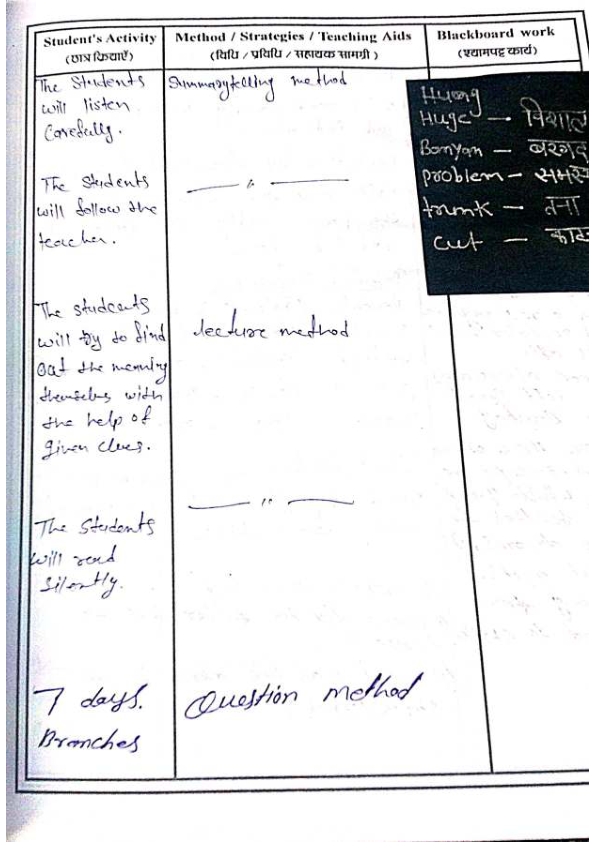 Student's Activity
(छात्र क्रियाएँ)
Method / Strategies / Teaching Aids
(विधि / प्रविधि / सहायक सामग्री)
Blackboard work
(श्यामपट्ट कार्य)
The Students
will listen
Carefully.
Summarytelling method
Hung
Huge — विशाल
Banyan — बरगद
problem — समस्
trunk — तना
cut — काट
The Students
will follow the
teacher.
— " —
The students
will try to find
out the meaning
themselves with
the help of
given clues.
lecture method
— " —
The Students
will read
silently.
7 days.
Branches
Question method